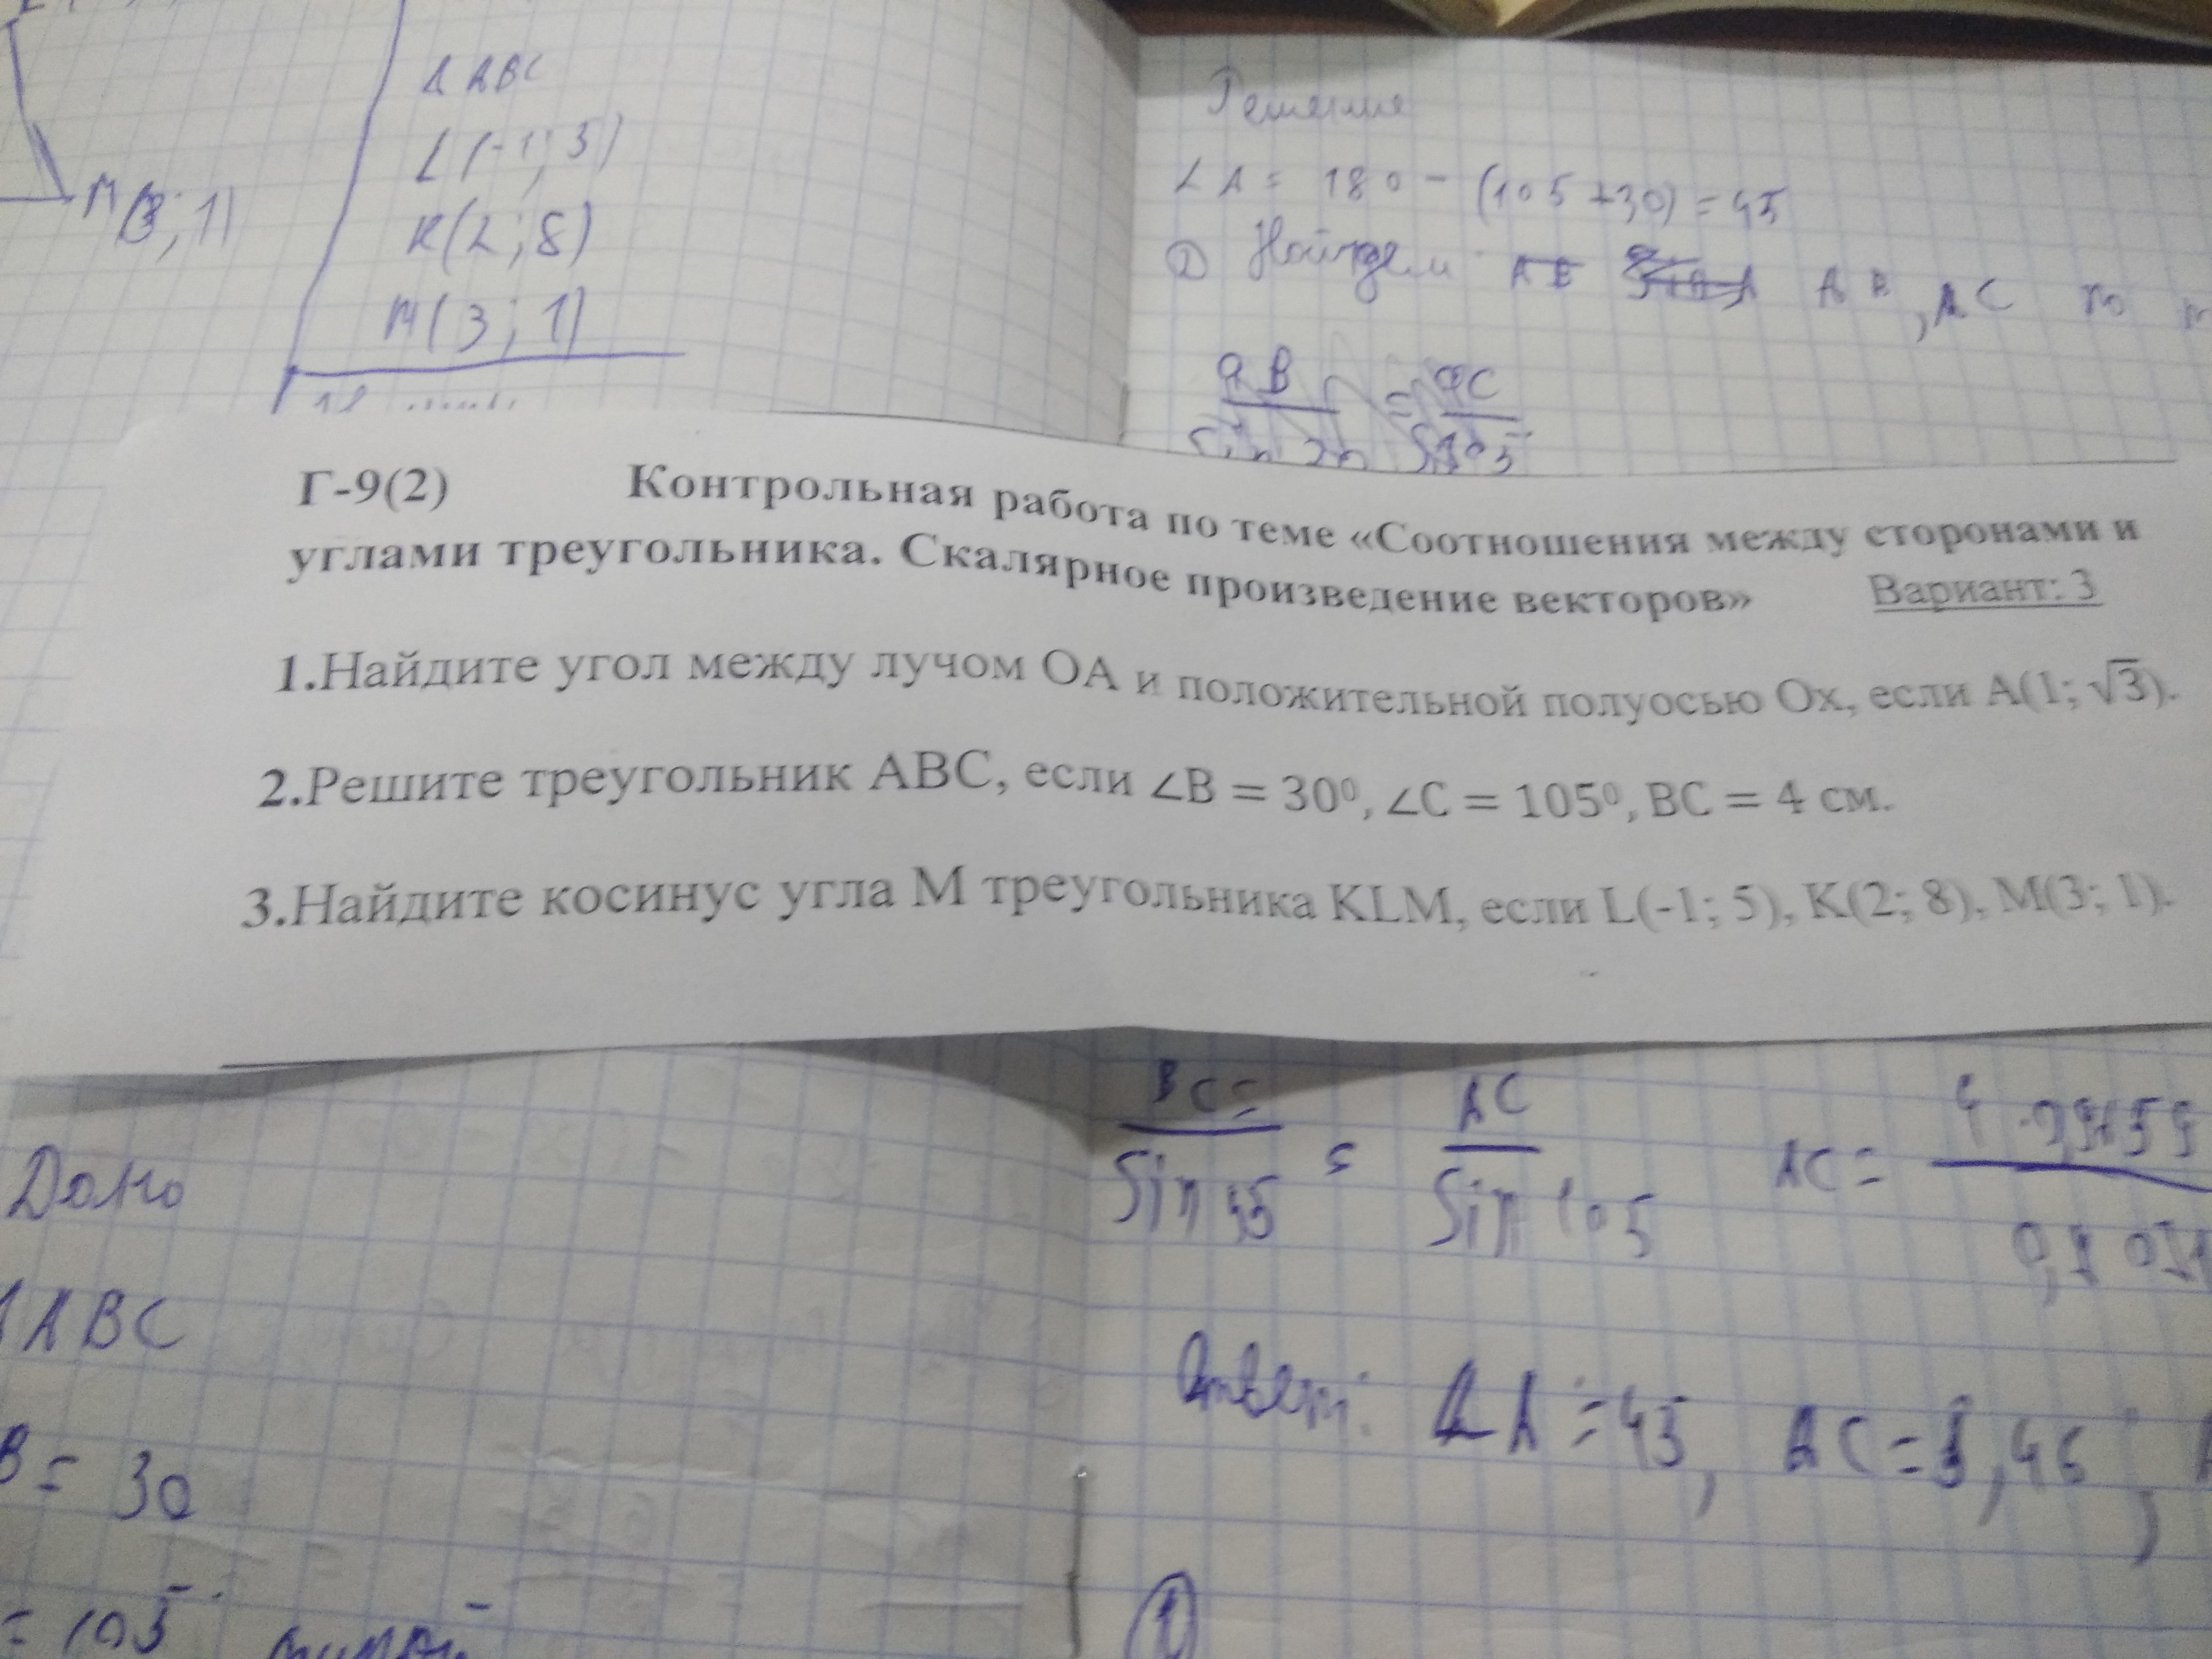 Δ ABC
L(-1; 5)
K(2; 8)
M(3; 1)
M(3; 1)
Решение
∠A = 180 - (105+30) = 45
② Найдем AB, AC по
Г-9(2) Контрольная работа по теме «Соотношения между сторонами и
углами треугольника. Скалярное произведение векторов» Вариант: 3
1.Найдите угол между лучом ОА и положительной полуосью Ох, если А(1; √3).
2.Решите треугольник АВС, если ∠B = 30⁰, ∠C = 105⁰, BC = 4 см.
3.Найдите косинус угла М треугольника KLM, если L(-1; 5), K(2; 8), M(3; 1).
BC = AC
Sin 45 = Sin 105
AC =
Дано
ABC
B = 30
= 105
Ответ: ∠A = 45, AC = 5,46;
①